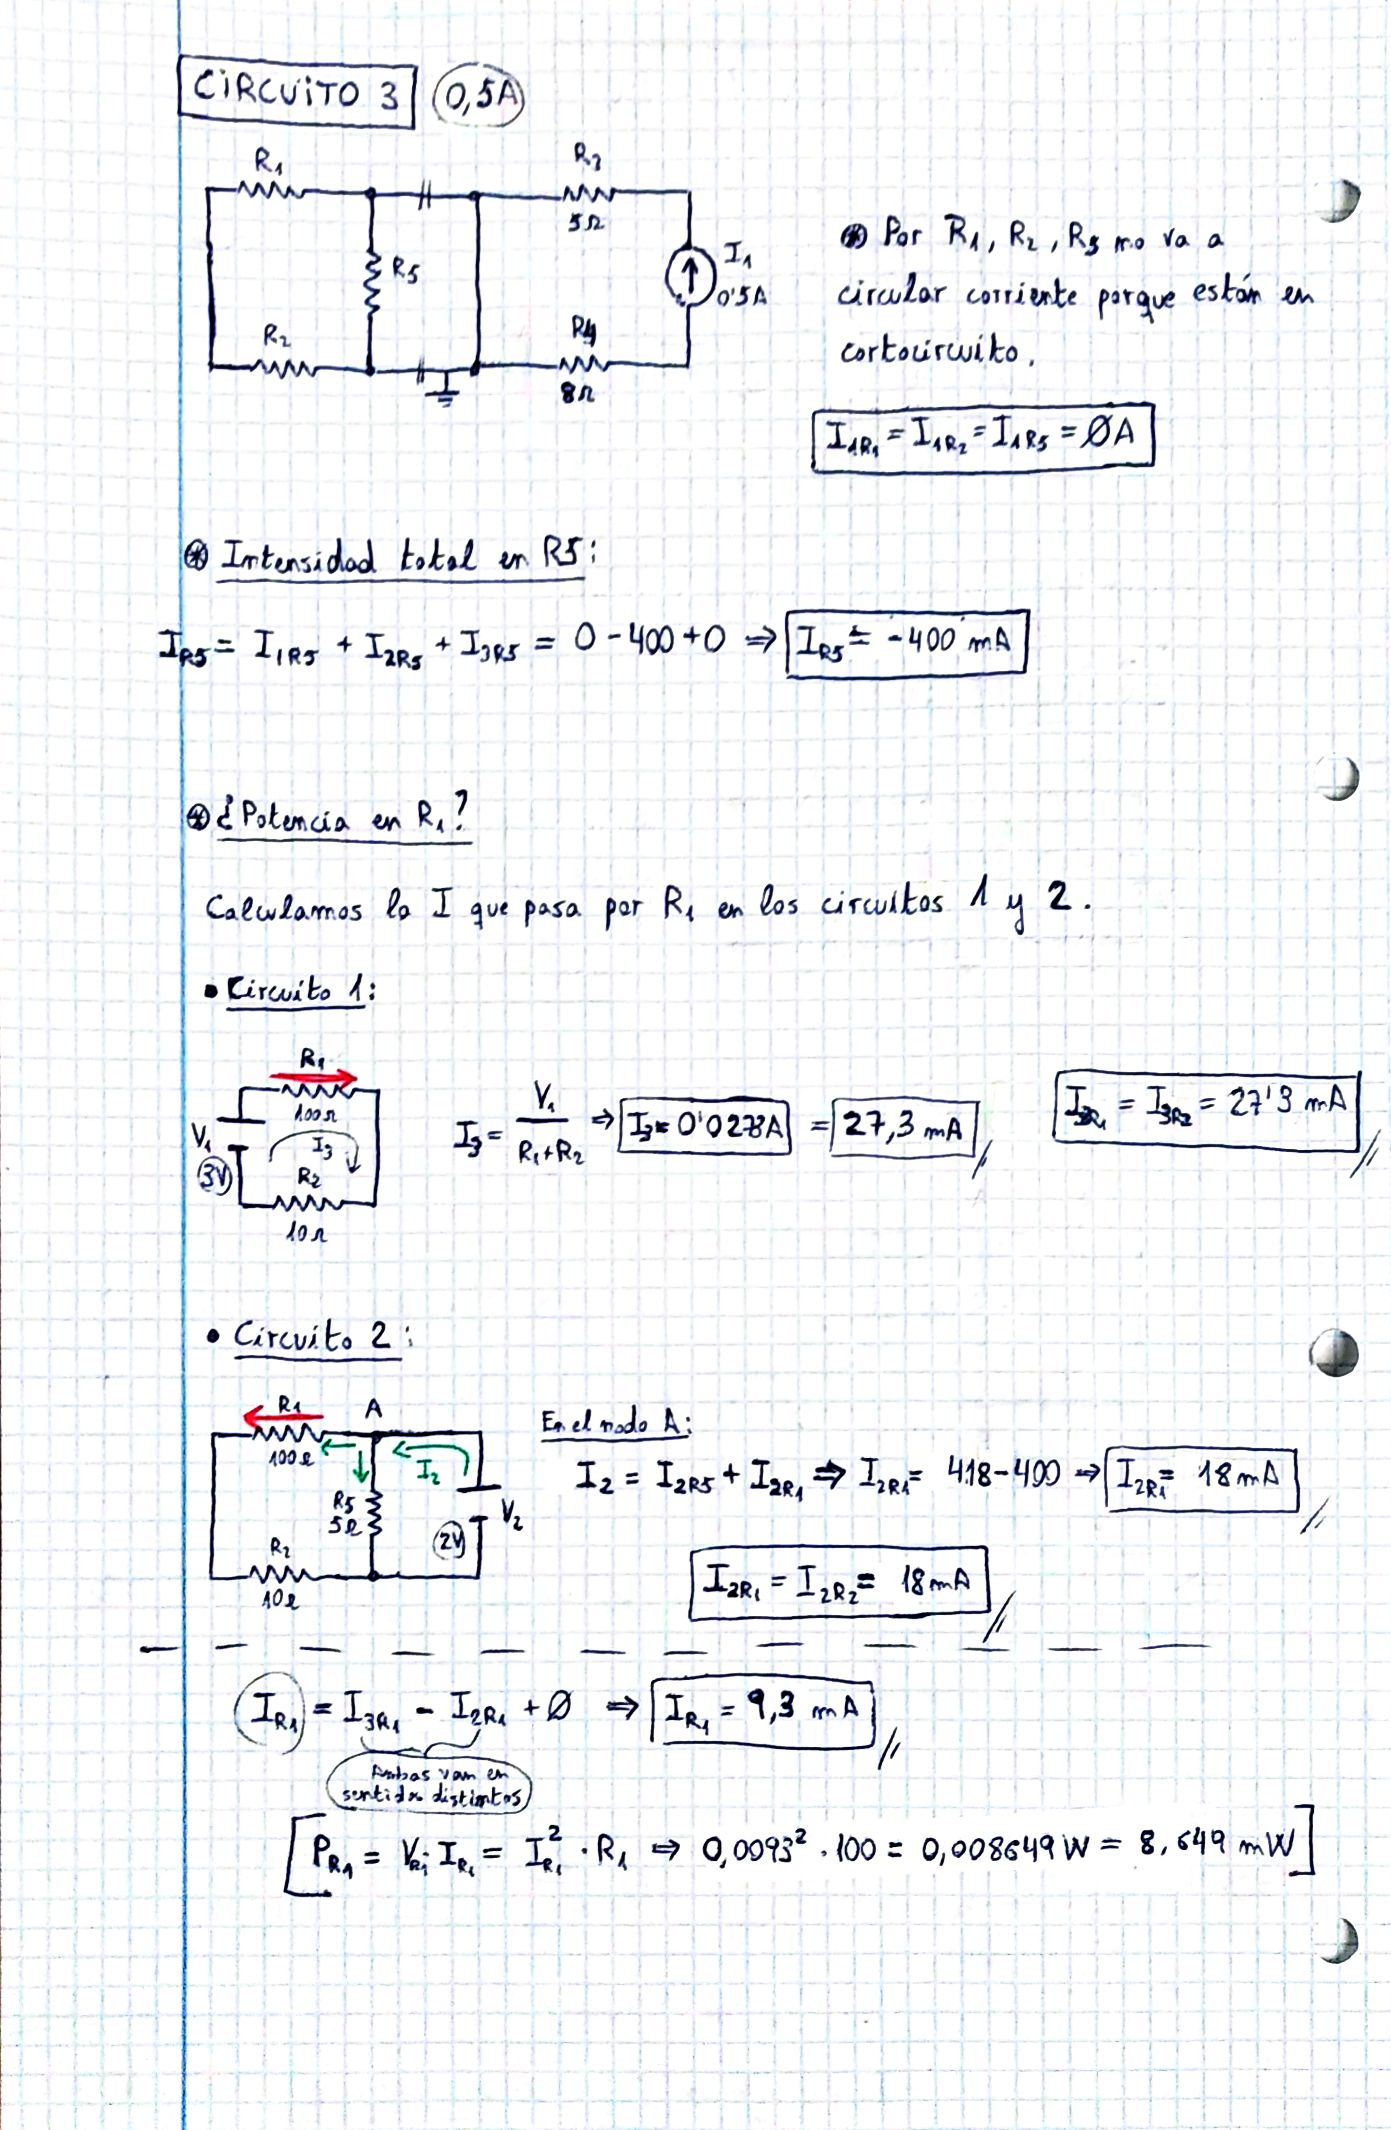 CIRCUITO 3 0,5A
R1
R3
5Ω
R5
I1
0'5A
R2
R4
8Ω
⊛ Por R1, R2, R5 no va a
circular corriente porque están en
cortocircuito.
I1R1 = I1R2 = I1R5 = ØA
⊛ Intensidad total en R5:
IR5 = I1R5 + I2R5 + I3R5 = 0 - 400 + 0 ⇒ IR5 = -400 mA
⊛ ¿Potencia en R1?
Calculamos la I que pasa por R1 en los circuitos 1 y 2.
• Circuito 1:
R1
100Ω
V1
3V
I3
R2
10Ω
I3 = V1 / R1+R2 ⇒ I3 = 0'0273A = 27,3 mA
I3R1 = I3R2 = 27'3 mA
• Circuito 2:
R1
A
100Ω
I2
R5
5Ω
V2
2V
R2
10Ω
En el nodo A:
I2 = I2R5 + I2R1 ⇒ I2R1 = 418-400 ⇒ I2R1 = 18 mA
I2R1 = I2R2 = 18 mA
IR1 = I3R1 - I2R1 + Ø ⇒ IR1 = 9,3 mA
Ambas van en
sentidos distintos
PR1 = VR1 · IR1 = IR1² · R1 ⇒ 0,0093² · 100 = 0,008649 W = 8,649 mW